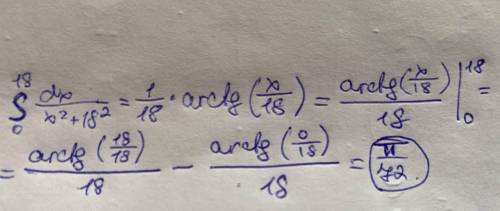 ∫₀¹⁸ dx/(x²+18²) = 1/18 · arctg(x/18) = arctg(x/18)/18 |₀¹⁸ =
= arctg(18/18)/18 − arctg(0/18)/18 = π/72.